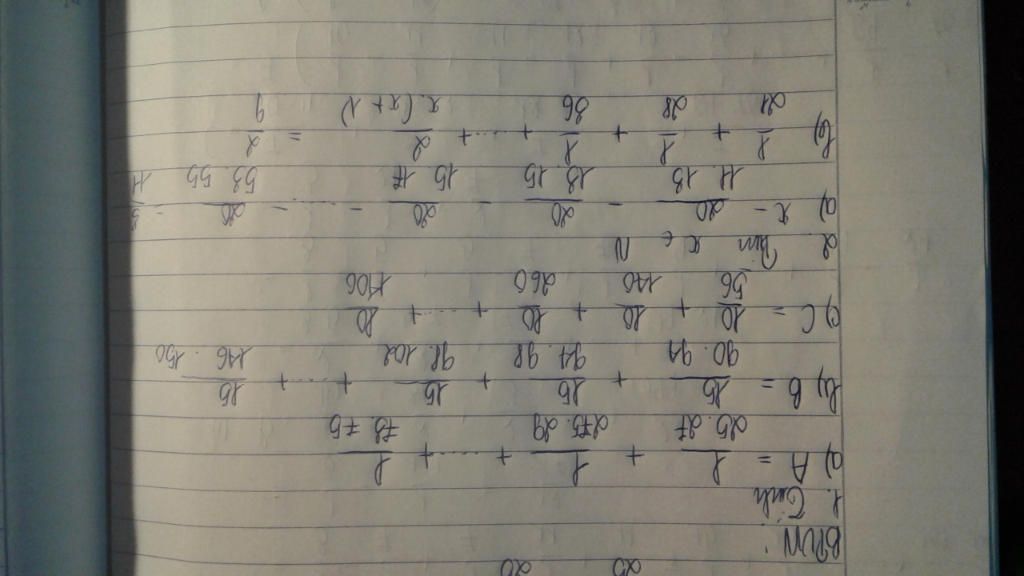 25 20
BTVN:
1. Tính
a) A = 1/25.27 + 1/275.29 + ... + 1/73.75
b) B = 15/90.94 + 15/94.98 + 15/98.102 + ... + 15/146.150
c) C = 10/56 + 10/140 + 10/260 + ... + 10/1400
2. Tìm x ∈ N
a) x - 20/11.13 - 20/13.15 - 20/15.17 - ... - 20/53.55 = 3/11
b) 1/21 + 1/28 + 1/36 + ... + 2/x.(x+1) = 2/9